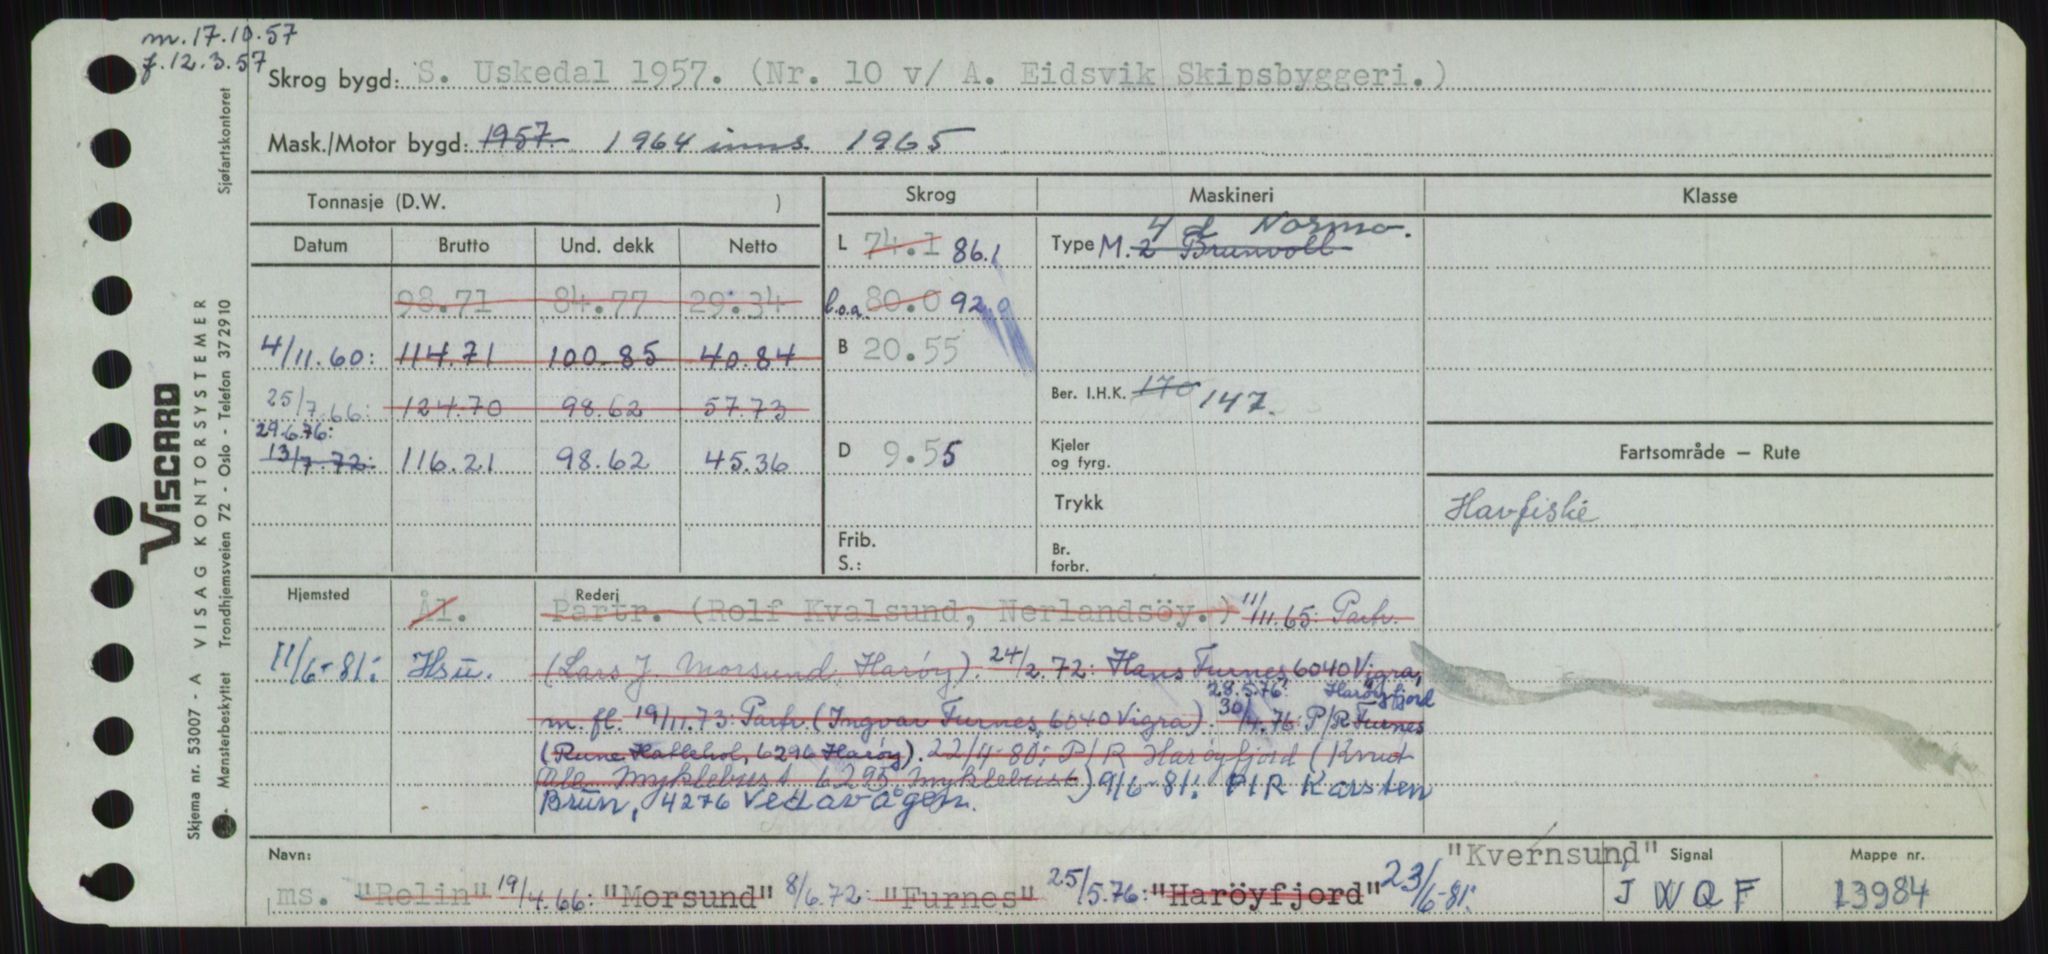 m. 17.10.57
f. 12.3.57
Skrog bygd: S. Uskedal 1957. (Nr. 10 v/ A. Eidsvik Skipsbyggeri.)
Mask./Motor bygd: 1957. 1964 inns. 1965
Tonnasje (D.W. )
Skrog
Maskineri
Klasse
Datum Brutto Und. dekk Netto
L 74.1 86.1
Type M. 2 Brunvoll 4 d Normo.
98.71 84.77 29.34
l.o.a. 80.0 92.0
4/11.60: 114.71 100.85 40.84
B 20.55
25/7.66: 124.70 98.62 57.73
Ber. I.H.K. 170 147.
29.6.76:
13/7.72: 116.21 98.62 45.36
D 9.55
Kjeler og fyrg.
Fartsområde — Rute
Trykk
Havfiske
Frib.
S.:
Br. forbr.
Hjemsted Ål.
Rederi
Partr. (Rolf Kvalsund, Nerlandsöy.) 11/11.65: Partr.
11/6-81: Hsu. (Lars J. Morsund, Harøy). 24/2.72: Hans Furnes, 6040 Vigra,
28.5.76: Harøyfjord
m. fl. 19/11.73: Partr. (Ingvar Furnes, 6040 Vigra). 30/4.76: P/R Furnes
(Rune Hallehol, 6296 Harøy). 22/4-80: P/R Harøyfjord (Knut
Ola Myklebust 6295 Myklebust) 9/6-81: P/R Karsten
Brun, 4276 Vedavågen.
Navn:
"Kvernsund"
Signal
Mappe nr.
ms. "Relin" 19/4.66: "Morsund" 8/6.72: "Furnes" 25/5.76: "Haröyfjord" 23/6-81:
J W Q F
13984
Skjema nr. 53007 - A VISAG KONTORSYSTEMER
VISCARD
Mønsterbeskyttet Trondhjemsveien 72 - Oslo - Telefon 372910 Sjøfartskontoret